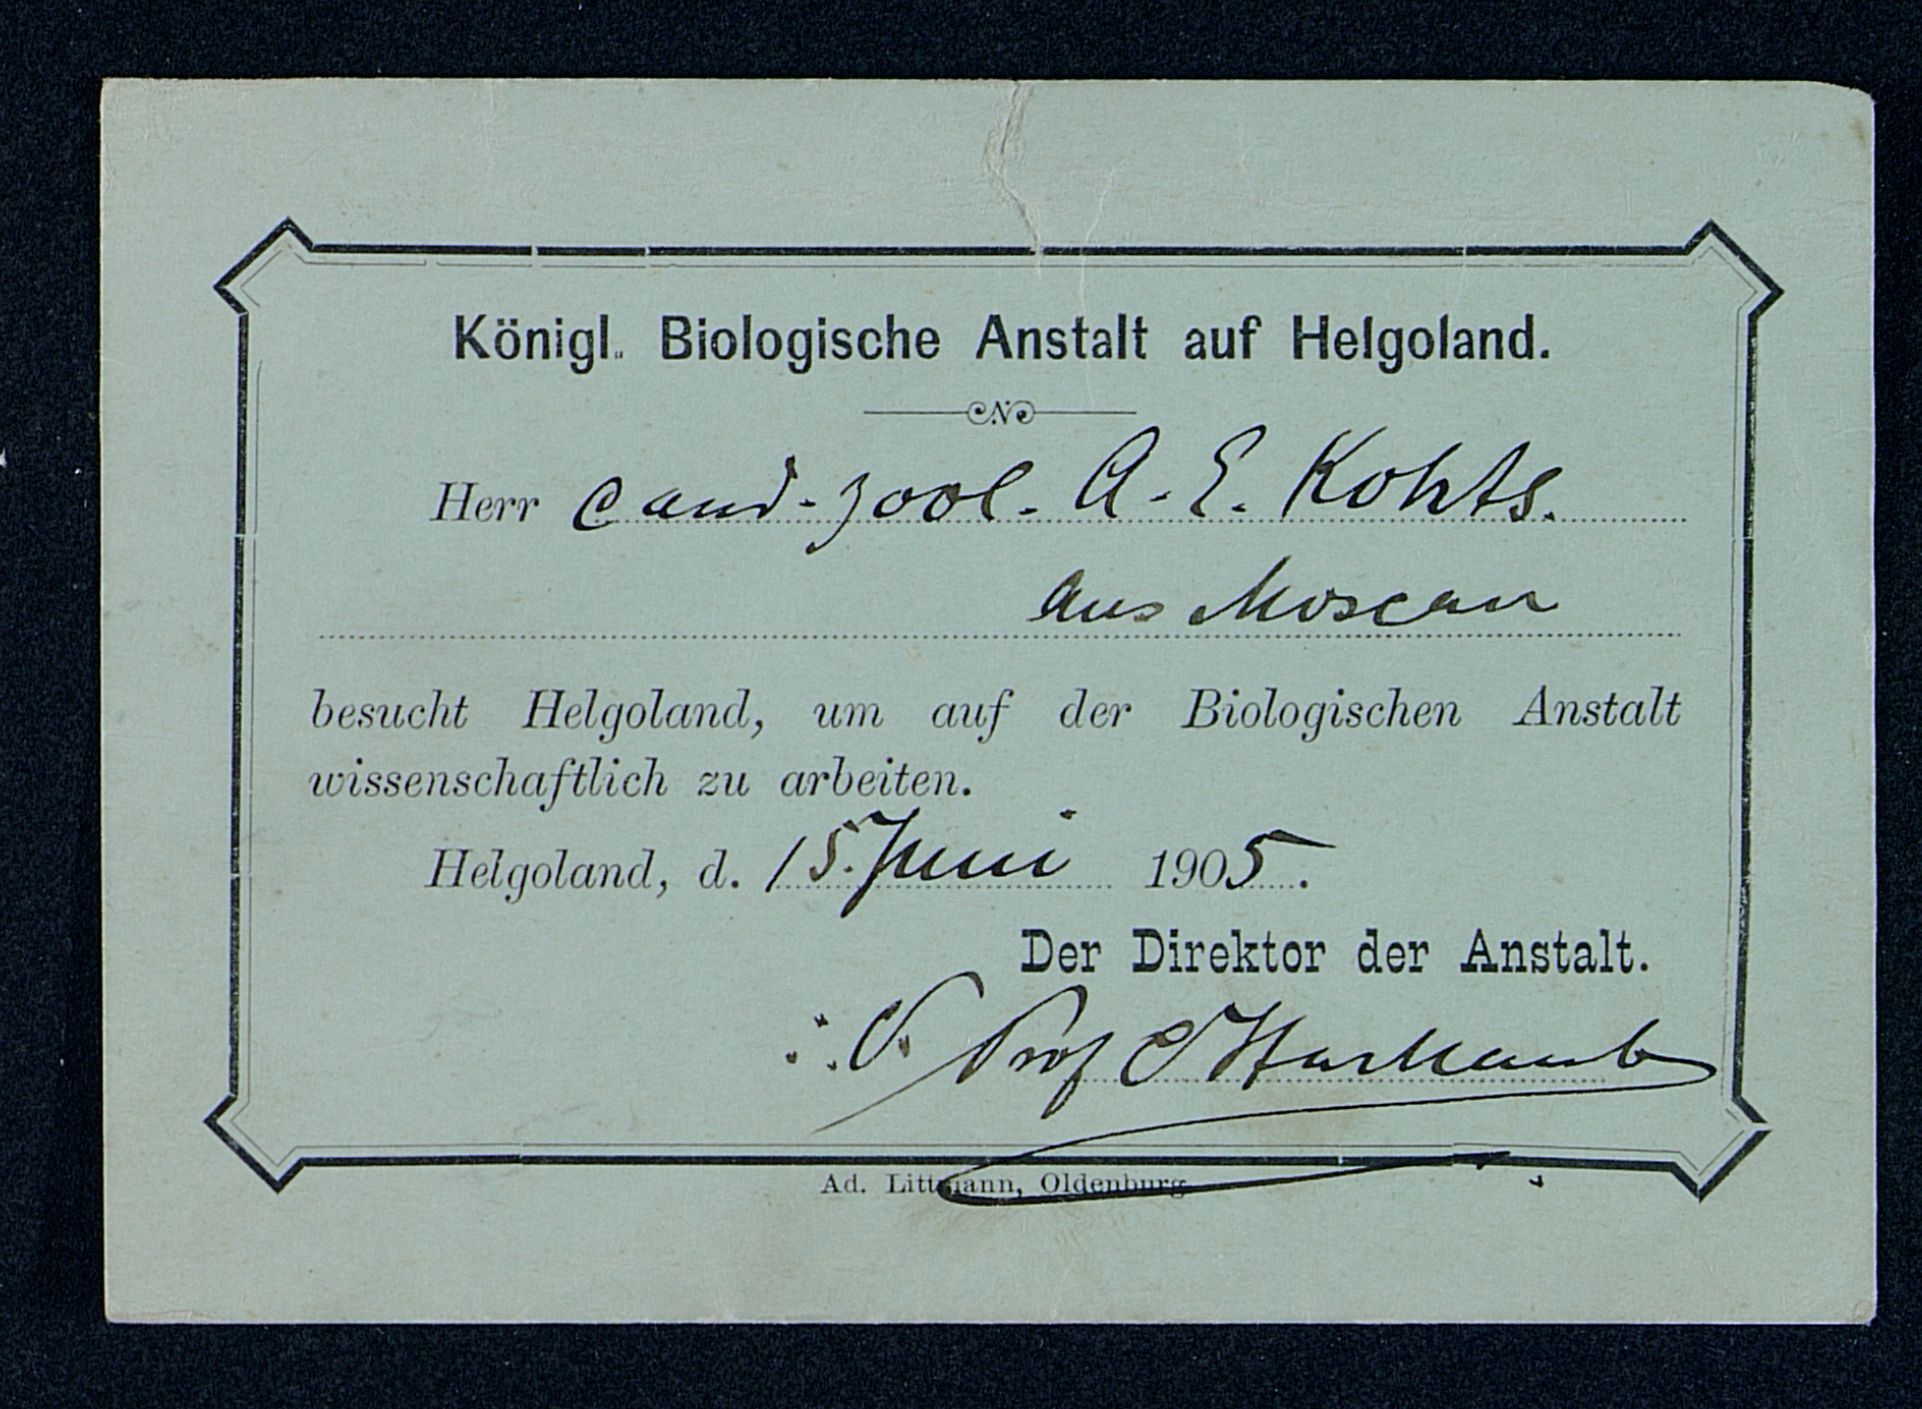 Königl. Biologische Anstalt auf Helgoland.
Herr cand. zool. A. E. Kohts.
aus Moscau
besucht Helgoland, um auf der Biologischen Anstalt
wissenschaftlich zu arbeiten.
Helgoland, d. 15. Juni 1905.
Der Direktor der Anstalt.
Prof C Hartlaub
Ad. Littmann, Oldenburg